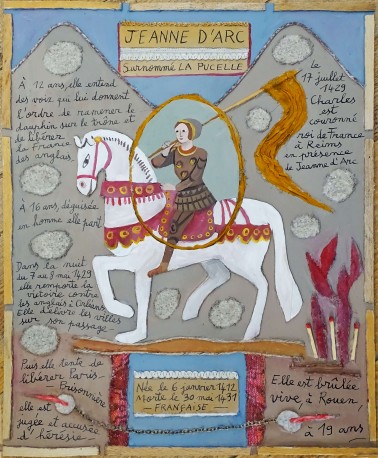 JEANNE D'ARC
Surnommé LA PUCELLE
À 12 ans, elle entend
des voix qui lui donnent
l'ordre de ramener le
dauphin sur le trône et
de libérer
la France
des anglais.
À 16 ans, déguisée
en homme elle part.
Dans la nuit
du 7 au 8 mai 1429
elle remporte la
victoire contre
les anglais à Orléans.
Elle délivre les villes
sur son passage
Puis elle tente de
libérer Paris.
Prisonnière
elle est
jugée et accusée
d'hérésie.
le
17 juillet
1429
Charles
est
couronné
roi de France
à Reims
en présence
de Jeanne d'Arc
Née le 6 janvier 1412
Morte le 30 mai 1431
- FRANÇAISE -
Elle est brûlée
vive, à Rouen,
à 19 ans